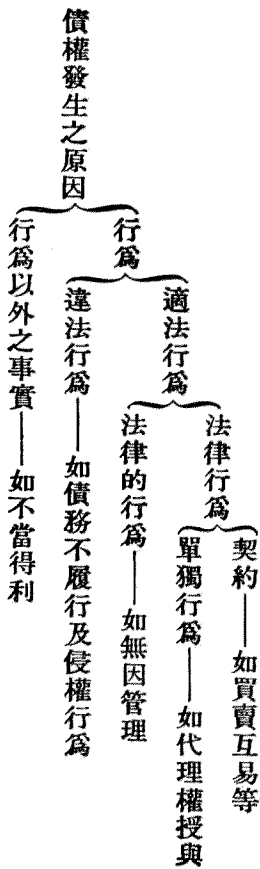 債權發生之原因
行爲
適法行爲
法律行爲
契約——如買賣互易等
單獨行爲——如代理權授與
法律的行爲——如無因管理
違法行爲——如債務不履行及侵權行爲
行爲以外之事實——如不當得利